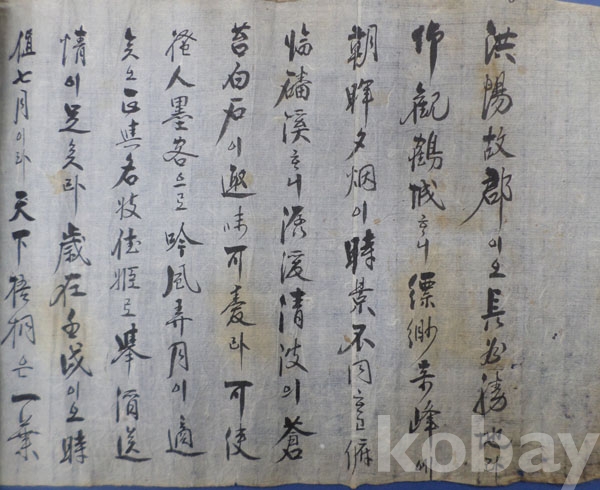 洪陽故郡이오 長爲勝地라
仰觀鶴城ᄒᆞ니 縹緲奇峰에
朝暉夕烟이 時景不同 俯
臨磻溪ᄒᆞ니 潺湲清波의 蒼
苔白石이 趣味可愛라 可使
騷人墨客으로 吟風弄月이 適
矣오 正與名妓佳姬로 擧酒送
情이 足矣라 歲在壬戌이오 時
値七月이라 天下梧桐은 一葉
kobay